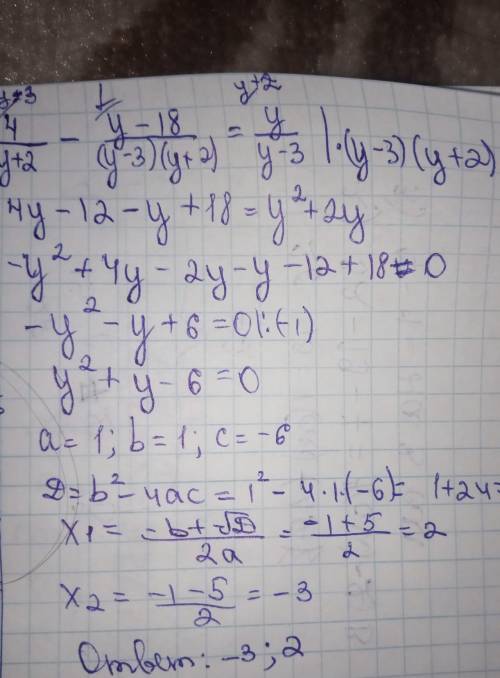 y-3 1 y+2
4/(y+2) - (y-18)/((y-3)(y+2)) = y/(y-3) |·(y-3)(y+2)
4y-12-y+18=y²+2y
-y²+4y-2y-y-12+18=0
-y²-y+6=0|:(-1)
y²+y-6=0
a=1; b=1; c=-6
D=b²-4ac=1²-4·1·(-6)=1+24=
x1=(-b+√D)/2a=(-1+5)/2=2
x2=(-1-5)/2=-3
Ответ: -3;2